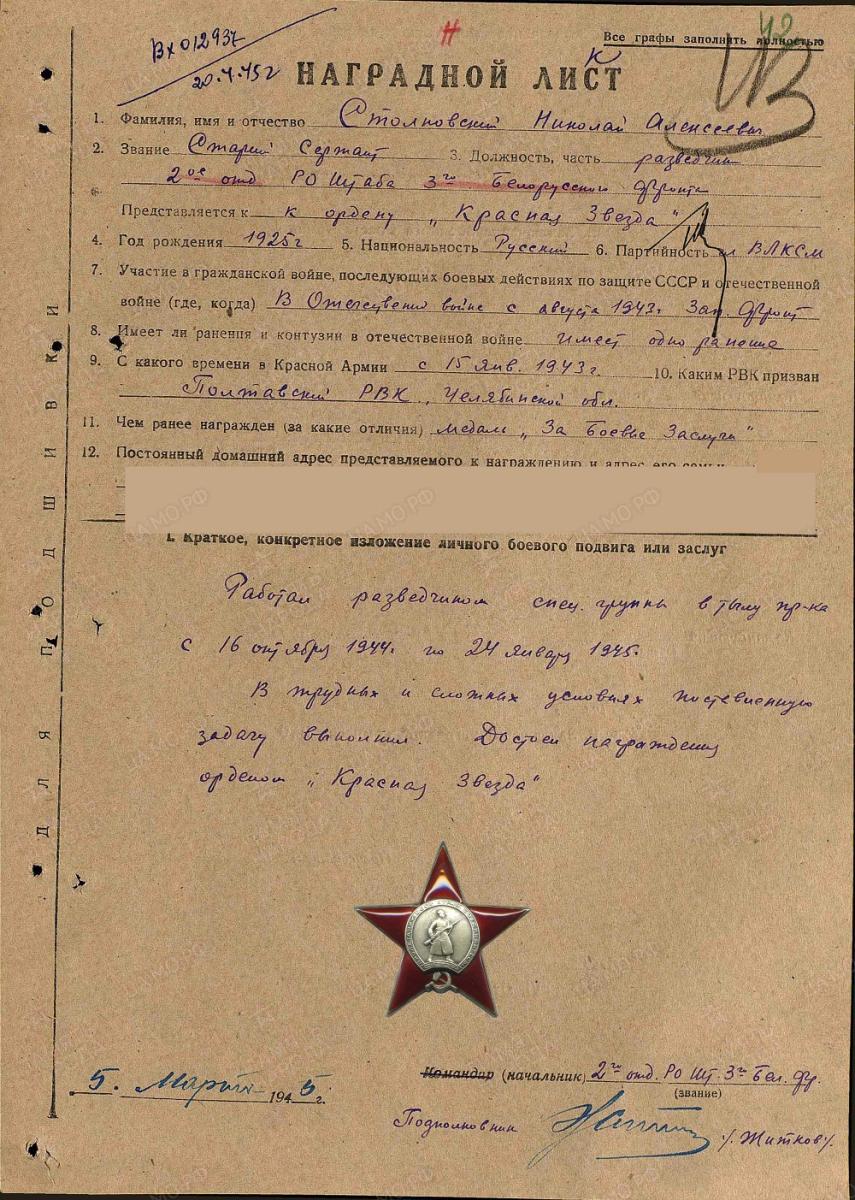 Вх 012937
20.4.45г
42
Все графы заполнить полностью
НАГРАДНОЙ ЛИСТ
1. Фамилия, имя и отчество Столповский Николай Алексеевич
2. Звание Старший Сержант 3. Должность, часть разведчик
2ое отд РО Штаба 3го Белорусского фронта
Представляется к к ордену „Красная Звезда"
4. Год рождения 1925г 5. Национальность Русский 6. Партийность чл ВЛКСМ
7. Участие в гражданской войне, последующих боевых действиях по защите СССР и отечественной
войне (где, когда) В Отечественной войне с августа 1943г. Зап. Фронт
8. Имеет ли ранения и контузии в отечественной войне имеет одно ранение
9. С какого времени в Красной Армии с 15 янв. 1943г. 10. Каким РВК призван
Полтавский РВК, Челябинской обл.
11. Чем ранее награжден (за какие отличия) медаль „За Боевые Заслуги"
12. Постоянный домашний адрес представляемого к награждению и адрес его семьи
I. Краткое, конкретное изложение личного боевого подвига или заслуг
Работал разведчиком спец. группы в тылу пр-ка
с 16 октября 1944г. по 24 января 1945г.
В трудных и сложных условиях поставленную
задачу выполнил. Достоен награждения
орденом „Красная Звезда"
5. Марта 1945 г.
Командир (начальник) 2го отд. РО Шт. 3го Бел. Фр.
(звание)
Подполковник /Житков/.
ДЛЯ ПОДШИВКИ
ЦАМО.РФ